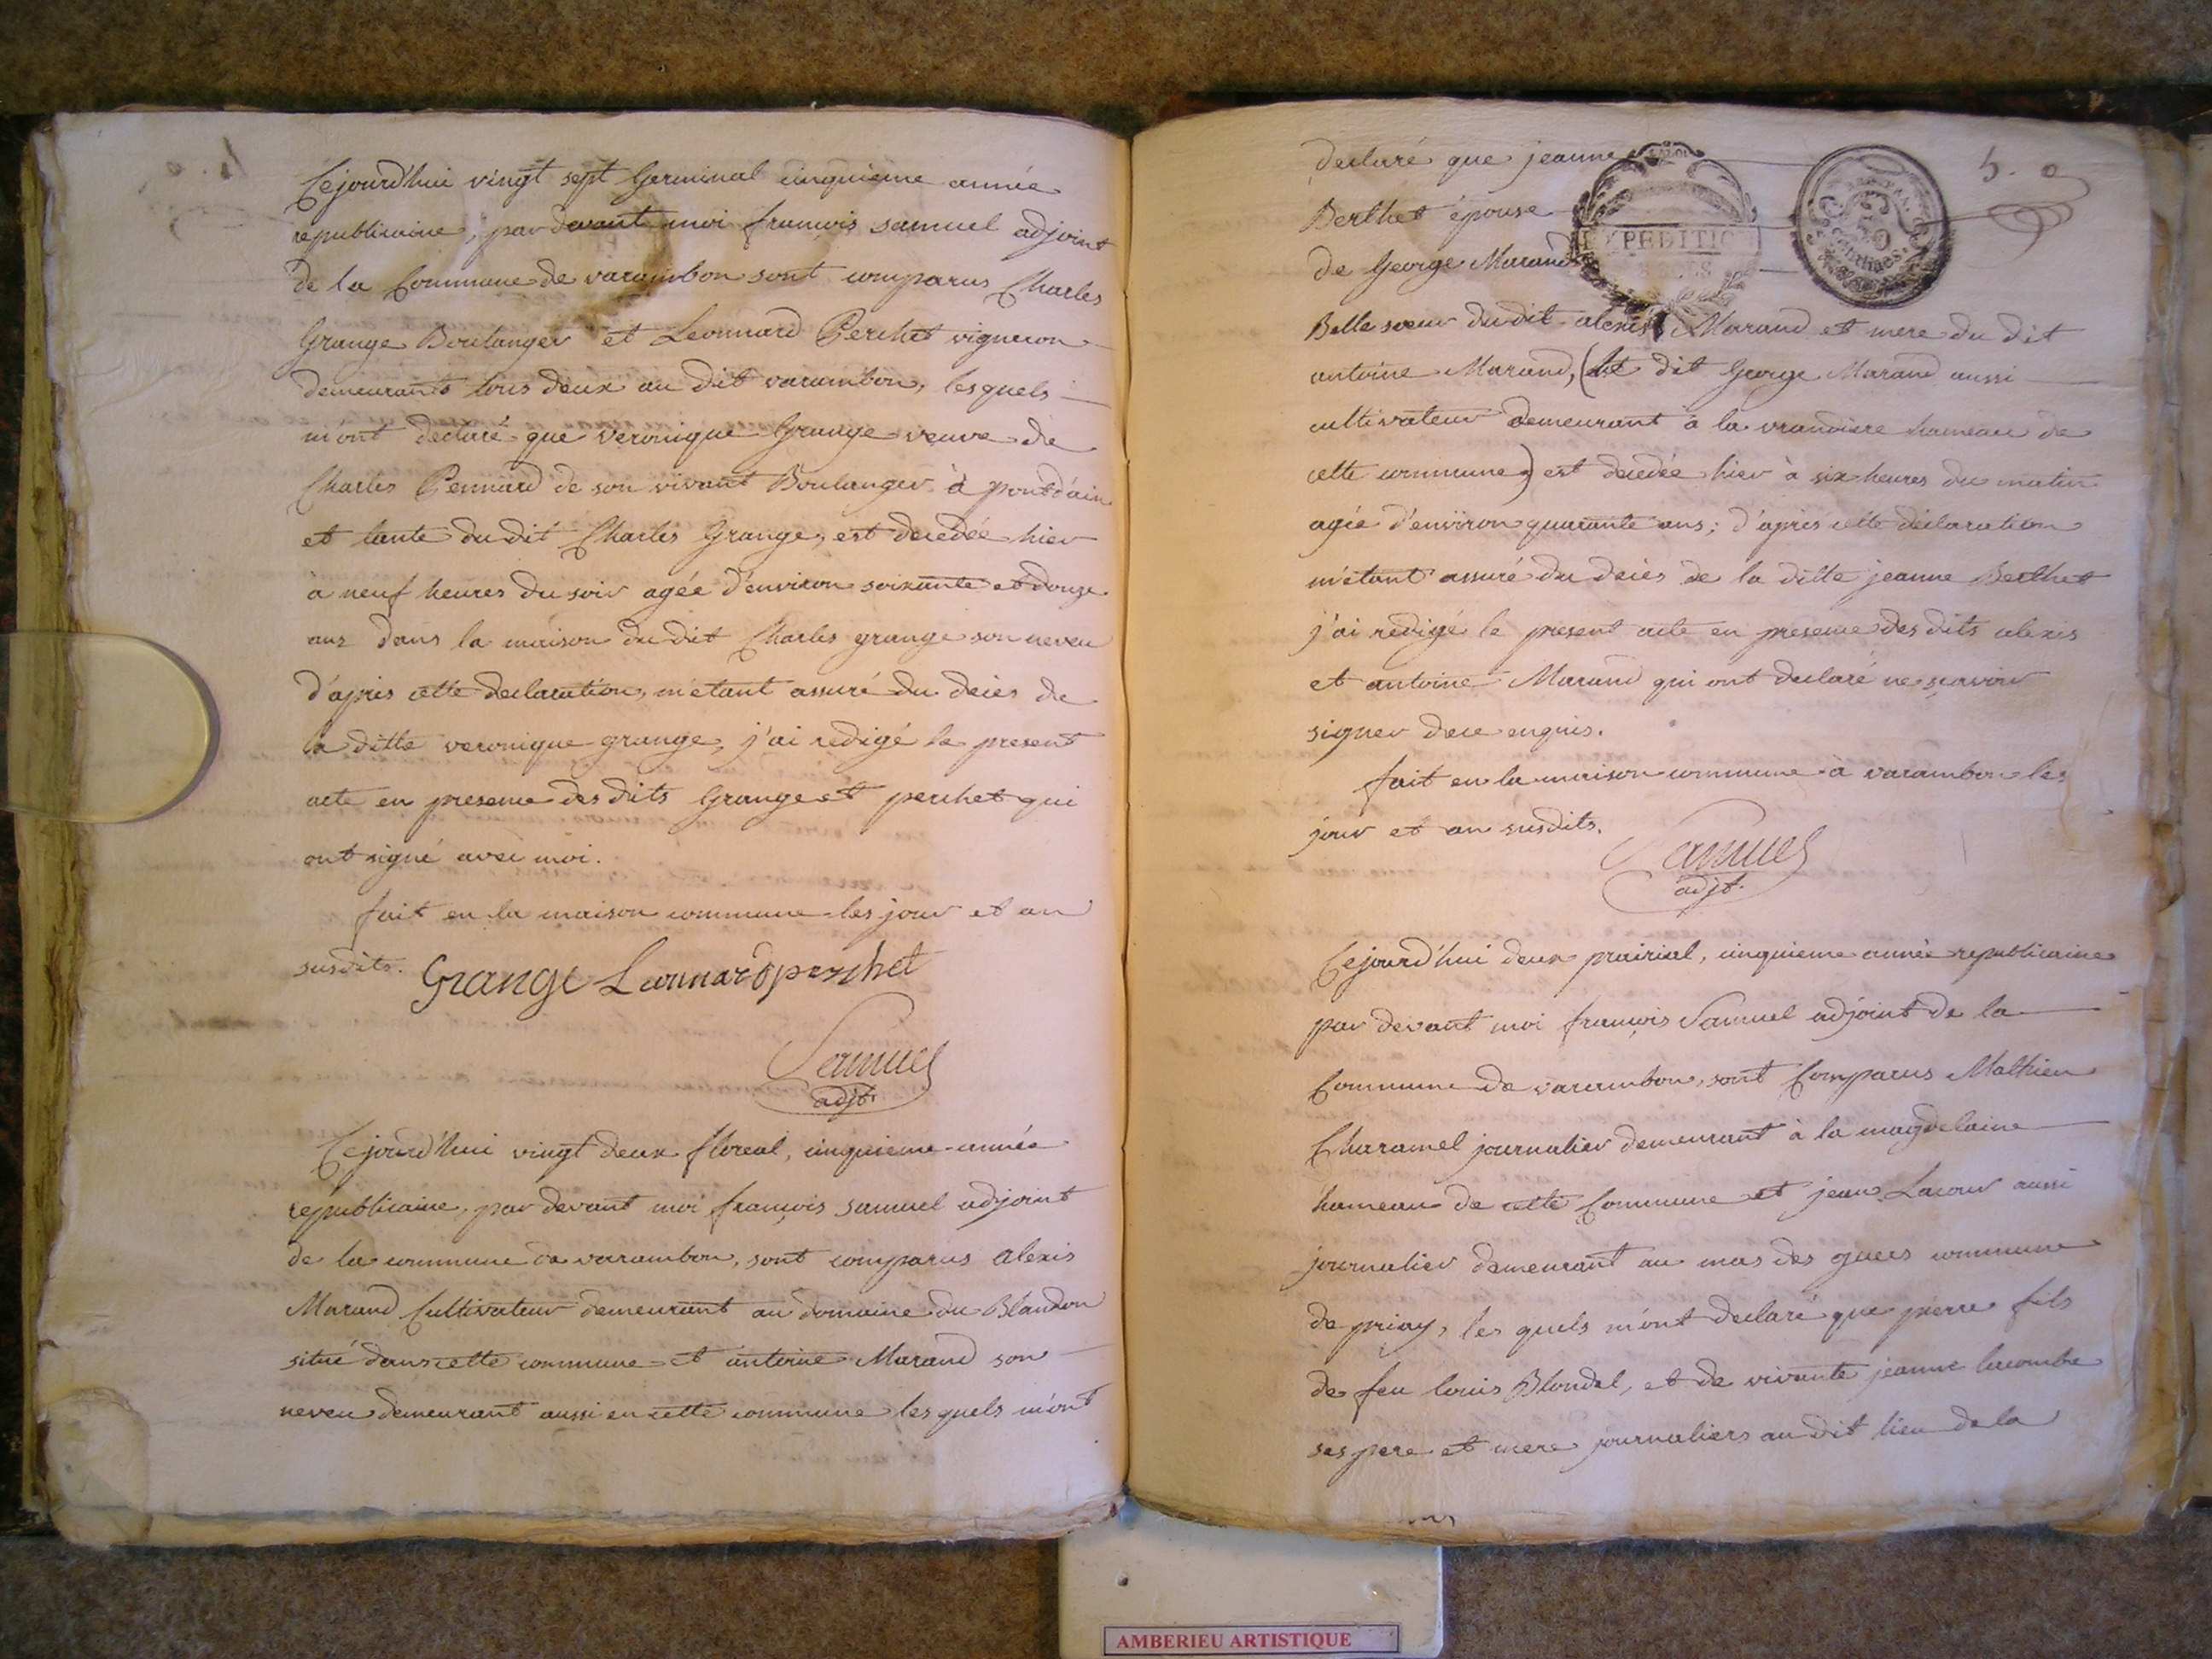 Cejourd'hui vingt sept Germinal cinquieme année
republicaine, par devant moi françois samuel adjoint
de la Commune de varambon sont comparus Charles
Grange Boulanger et Leonnard Perchet vigneron
demeurants tous deux au dit varambon, les quels
m'ont declaré que veronique Grange veuve de
Charles Pennard de son vivant Boulanger à pontd'ain
et tante du dit Charles Grange, est decedée hier
à neuf heures du soir agée d'environ soixante et douze
ans dans la maison du dit Charles grange son neveu
d'après cette declaration, m'etant assuré du decès de
la ditte veronique grange, j'ai redigé le present
acte en presence des dits Grange et perchet qui
ont signé avec moi.
fait en la maison commune les jour et an
susdits. Grange Leonnard perchet
Samuel
adjt.
Cejourd'hui vingt deux floreal, cinquieme année
republicaine, par devant moi françois samuel adjoint
de la commune de varambon, sont comparus alexis
Marand Cultivateur demeurant au domaine du Blandon
situé dans cette commune et antoine Marand son
neveu demeurant aussi en cette commune les quels m'ont
5.
declaré que jeanne
Berthet épouse
EXPEDITION
50 centimes
de George Marand
Belle soeur du dit alexis Marand et mere du dit
antoine Marand, (le dit George Marand aussi
cultivateur demeurant à la vrandiere hameau de
cette commune) est decedée hier à six heures du matin
agée d'environ quarante ans; d'après cette déclaration
m'étant assuré du decès de la ditte jeanne Berthet
j'ai redigé le present acte en presence des dits alexis
et antoine Marand qui ont declaré ne sçavoir
signer de ce enquis.
fait en la maison commune à varambon les
jour et an susdits.
Samuel
adjt.
Cejourd'hui deux prairial, cinquieme année republicaine
par devant moi françois Samuel adjoint de la
Commune de varambon, sont Comparus Mathieu
Charamel journalier demeurant à la magdelaine
hameau de cette Commune et jean Lacour aussi
journalier demeurant au mas des gueis commune
de priay, les quels m'ont declaré que pierre fils
de feu louis Blondel, et de vivante jeanne lacombe
ses pere et mere journaliers au dit lieu de la
AMBERIEU ARTISTIQUE